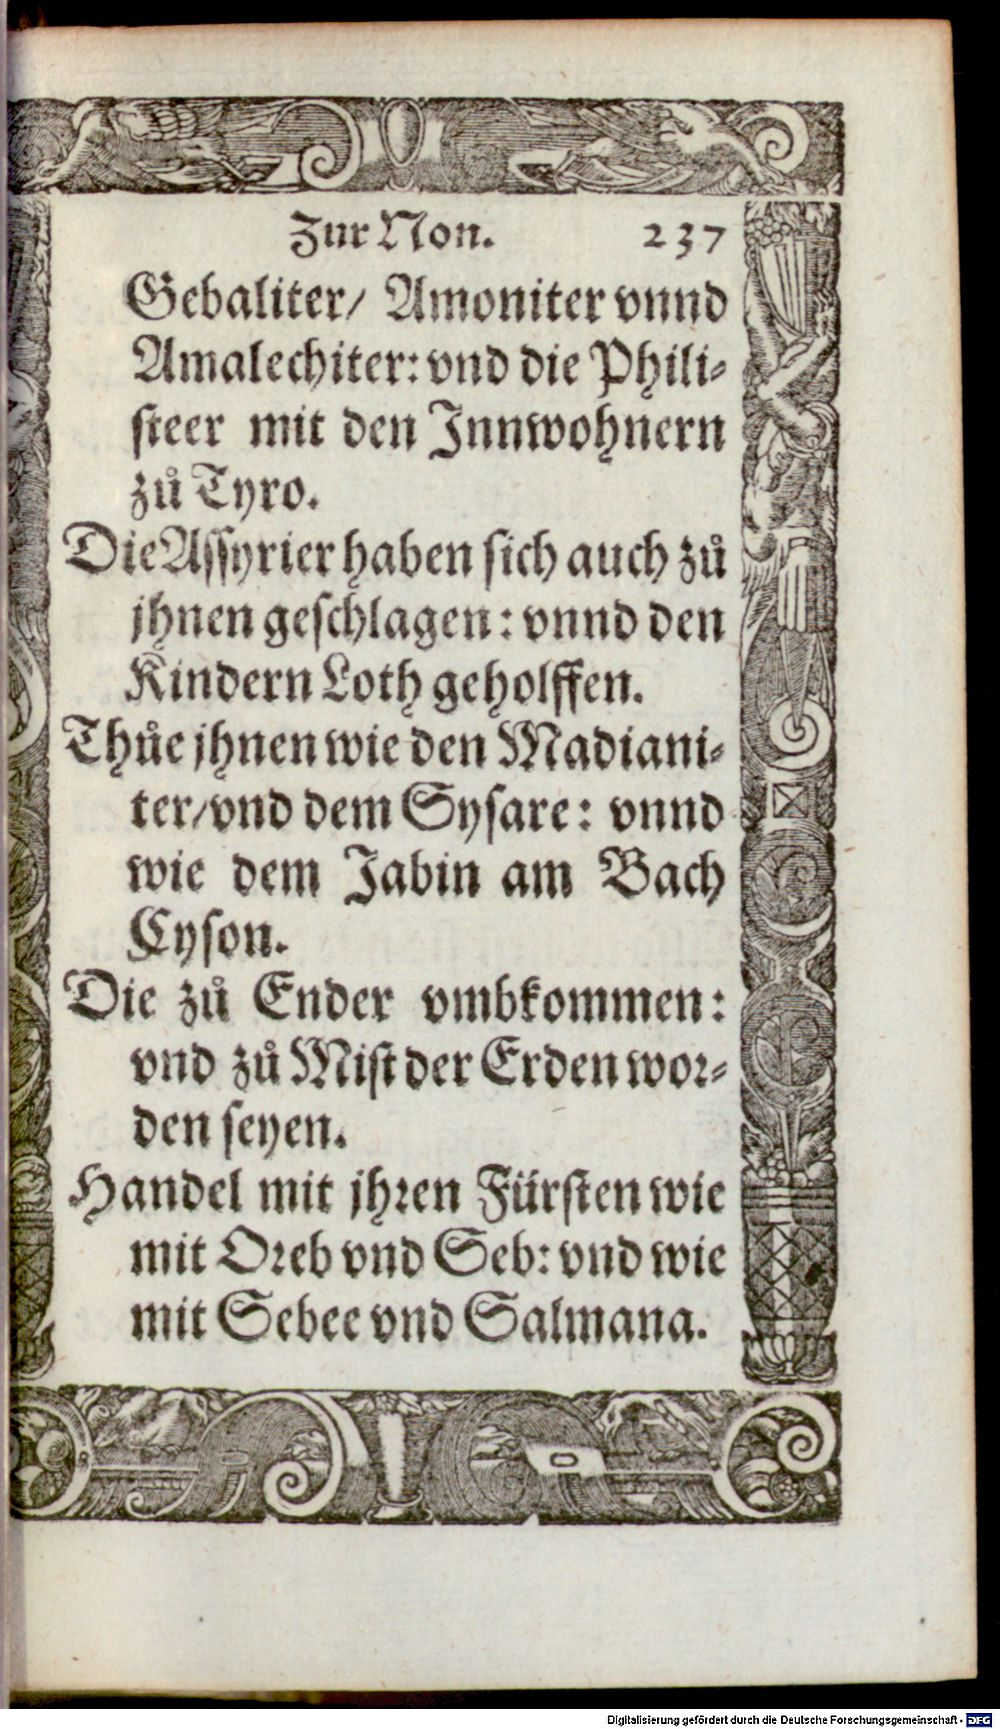 Zur Non. 237
Gebaliter/ Amoniter vnnd
Amalechiter: vnd die Phili⸗
ſteer mit den Innwohnern
zuͦ Tyro.
Die Aſſyrier haben ſich auch zuͦ
jhnen geſchlagen: vnnd den
Kindern Loth geholffen.
Thuͦe jhnen wie den Madiani⸗
ter/vnd dem Syſare: vnnd
wie dem Jabin am Bach
Cyſon.
Die zuͦ Ender vmbkommen:
vnd zuͦ Miſt der Erden wor⸗
den ſeyen.
Handel mit jhren Fürſten wie
mit Oreb vnd Seb: vnd wie
mit Sebee vnd Salmana.
Digitalisierung gefördert durch die Deutsche Forschungsgemeinschaft - DFG